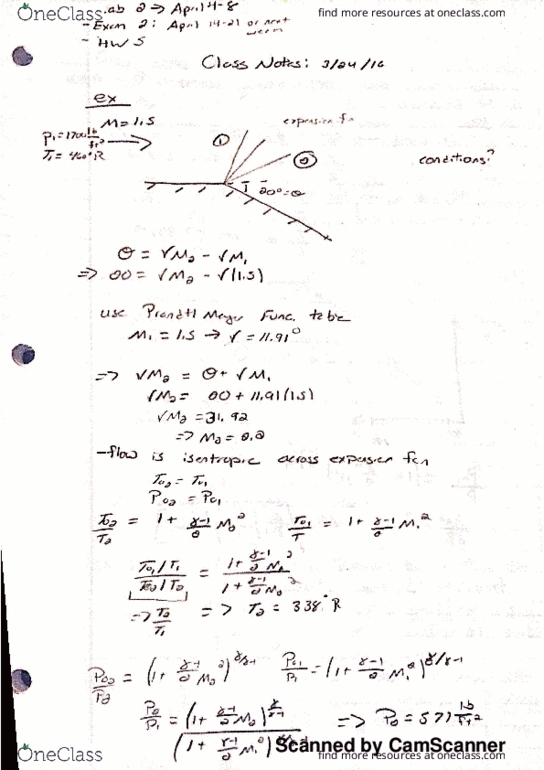 OneClass
find more resources at oneclass.com
Lab 2 => April 4-8
- Exam 2: April 14-21 or next week
- HW 5
Class Notes: 3/24/16
ex
M=1.5
P₁=1700 lb/ft²
T₁=460°R
①
expansion fn
②
20°=θ
conditions?
θ = √M₂ - √M₁
=> 20 = √M₂ - √(1.5)
use Prandtl Meyer Func. table
M₁ = 1.5 → √ = 11.91°
=> √M₂ = θ + √M₁
√M₂ = 20 + 11.91(1.5)
√M₂ = 31.92
=> M₂ = 2.2
-flow is isentropic across expansion fan
T₀₂ = T₀₁
P₀₂ = P₀₁
T₀₂/T₂ = 1 + (γ-1)/2 M₂² T₀₁/T = 1 + (γ-1)/2 M₁²
(T₀₁/T₁)/(T₀₂/T₂) = (1 + (γ-1)/2 M₁²)/(1 + (γ-1)/2 M₂²)
=> T₂/T₁ => T₂ = 338°R
P₀₂/P₂ = (1 + (γ-1)/2 M₂²)^(γ/γ-1) P₀₁/P₁ = (1 + (γ-1)/2 M₁²)^(γ/γ-1)
P₂/P₁ = (1 + (γ-1)/2 M₂)^(γ/γ-1) / (1 + (γ-1)/2 M₁²) => P₂ = 571 lb/ft²
Scanned by CamScanner
OneClass
find more resources at oneclass.com